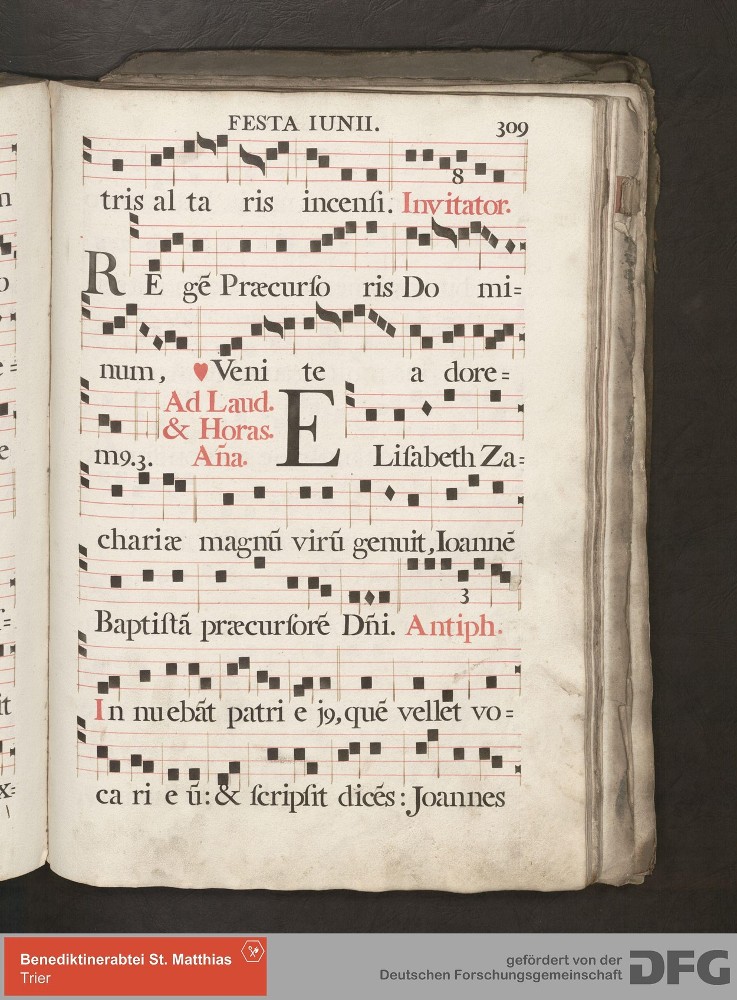 FESTA IUNII. 309
8
tris al ta ris incenſi. Invitator.
RE gē Præcurſo ris Do mi=
num, ♥ Veni te a dore=
Ad Laud.
& Horas.
m9.3. Aña. ELiſabeth Za=
chariæ magnū virū genuit, Ioannē
3
Baptiſtā præcurſorē Dñi. Antiph.
In nuebāt patri e j9, quē vellet vo=
ca ri e ū: & ſcripſit dicēs: Joannes
Benediktinerabtei St. Matthias
Trier
gefördert von der
Deutschen Forschungsgemeinschaft DFG